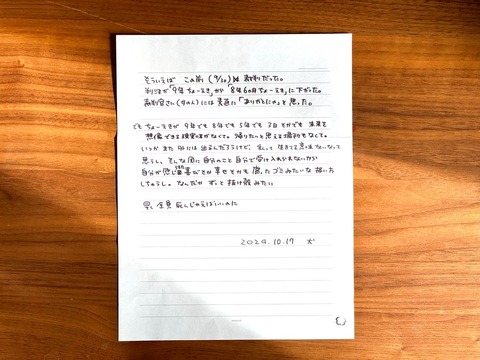 そういえば この前 (9/20) 裁判だった。
判決が「9年ちょーえき」が「8年6ヵ月ちょーえき」に下がった。
裁判官さん(4のん)には素直に「ありがとにゃ」と思った。
でも ちょーえきが 9年でも 8年でも 5年でも 3日とかでも 未来を
想像できる現実味がなくて。帰りたいと思える場所もなくて。
いつか また 外には出るんだろうけど、私って 生きてる意味ないなって
思うし、そんな風に自分のこと 自分で受け入れられないから
自分が感じる喜びとか 幸せとかも 腐ったゴミみたいな 扱い
しちゃうし。なんだか ずっと 抜け殻みたい。
早く 全員 死んじゃえばいいのに
2024.10.17